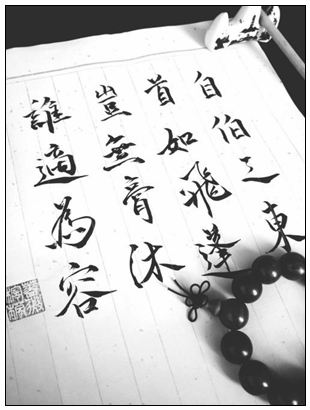 自伯之東
首如飛蓬
豈無膏沐
誰適為容